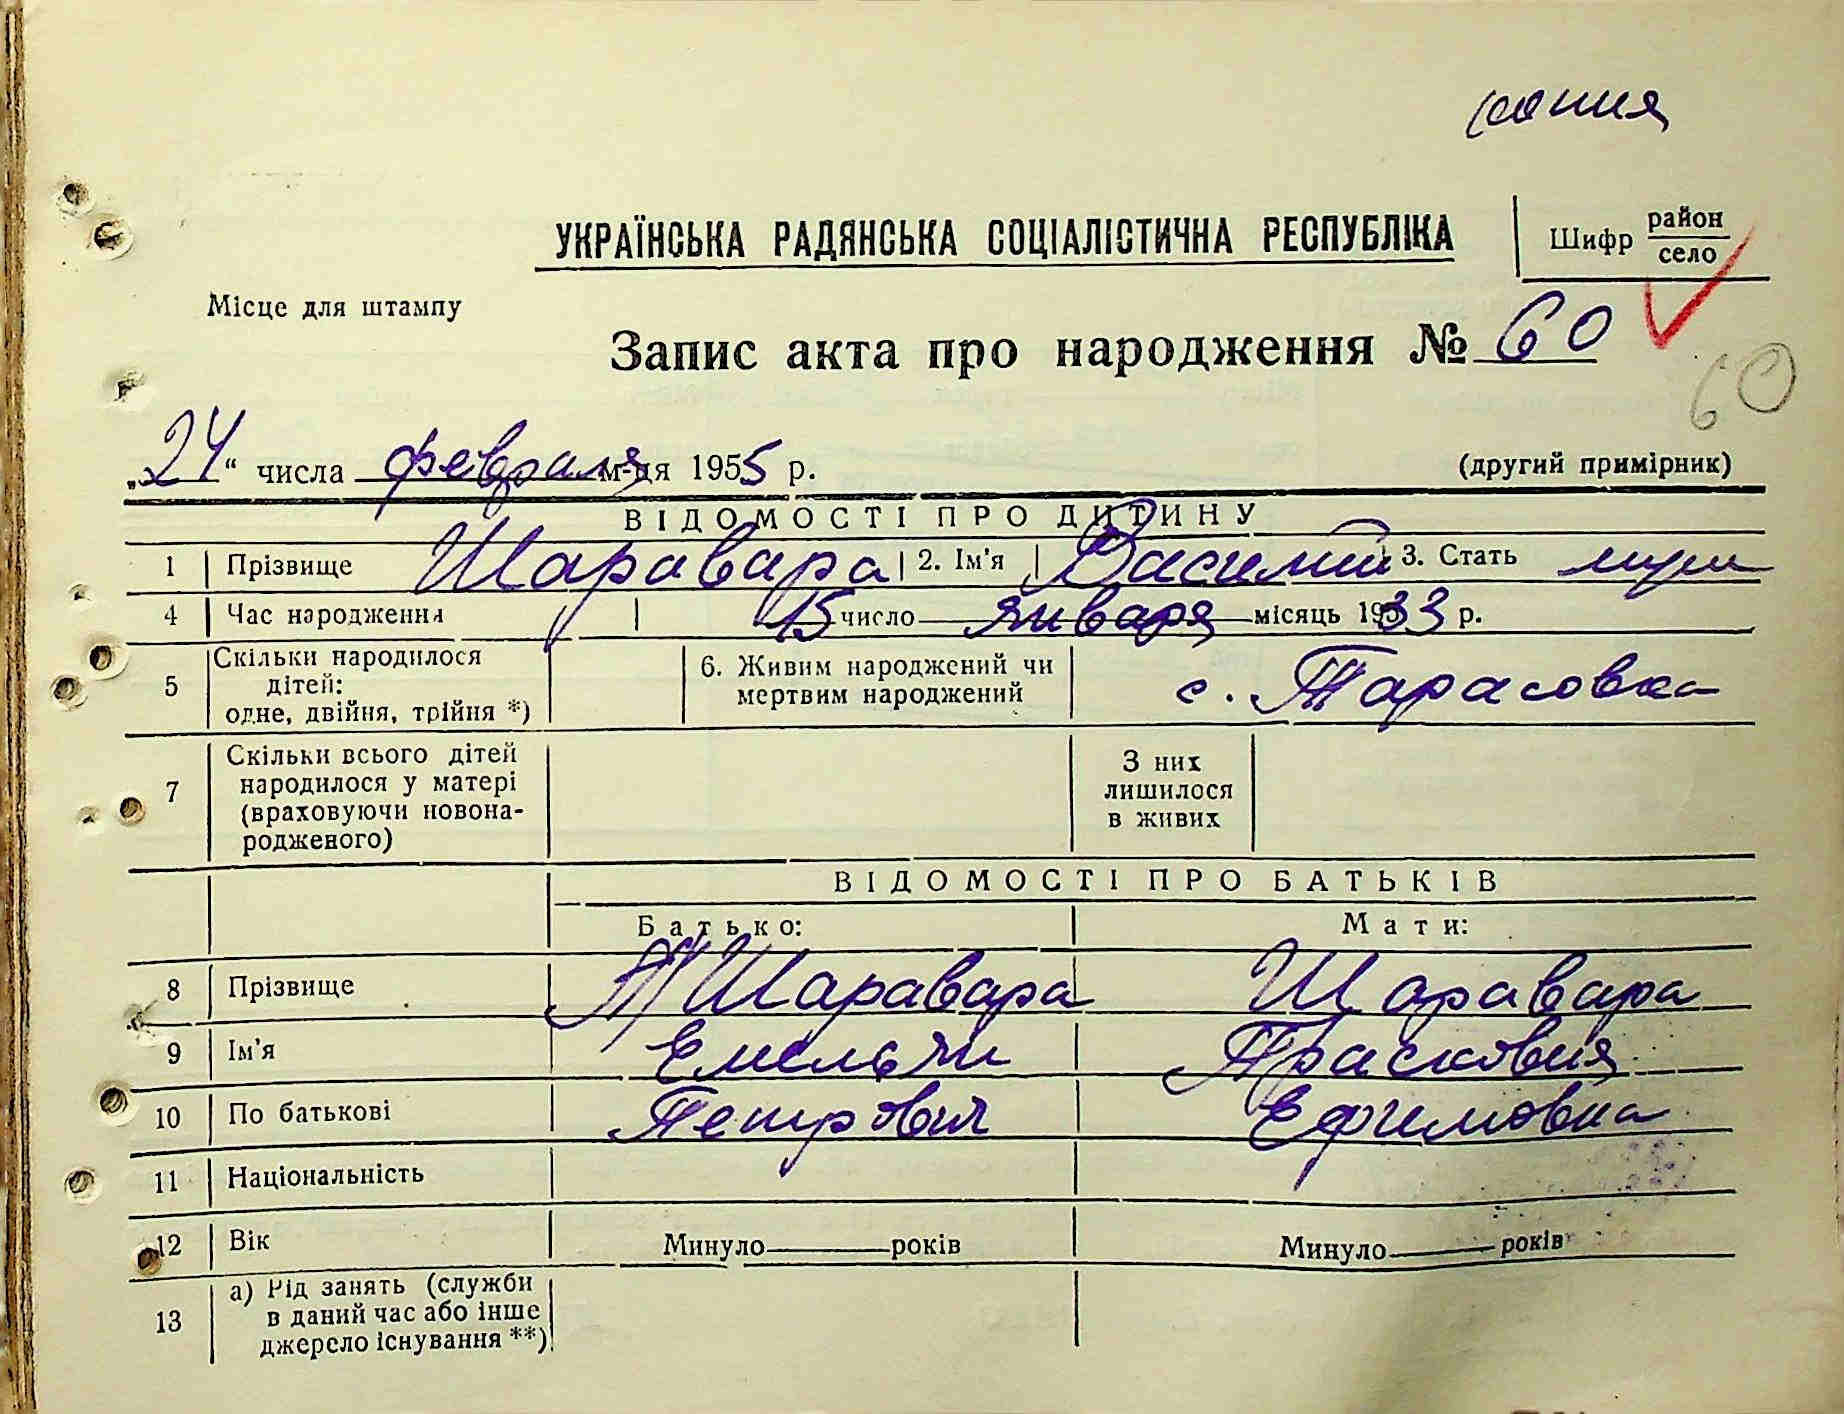 копия
УКРАЇНСЬКА РАДЯНСЬКА СОЦІАЛІСТИЧНА РЕСПУБЛІКА
Шифр район
село
Місце для штампу
Запис акта про народження № 60
60
„24“ числа февраля м-ця 1955 р.
(другий примірник)
ВІДОМОСТІ ПРО ДИТИНУ
1 Прізвище Шаравара 2. Ім'я Василий 3. Стать муж
4 Час народження 15 число января місяць 1933 р.
5 Скільки народилося дітей: одне, двійня, трійня *) 6. Живим народжений чи мертвим народжений с. Тарасовка
7 Скільки всього дітей народилося у матері (враховуючи новонародженого) З них лишилося в живих
ВІДОМОСТІ ПРО БАТЬКІВ
Батько: Мати:
8 Прізвище Шаравара Шаравара
9 Ім'я Емельян Прасковия
10 По батькові Петрович Ефимовна
11 Національність
12 Вік Минуло років Минуло років
13 а) Рід занять (служби в даний час або інше джерело існування **)